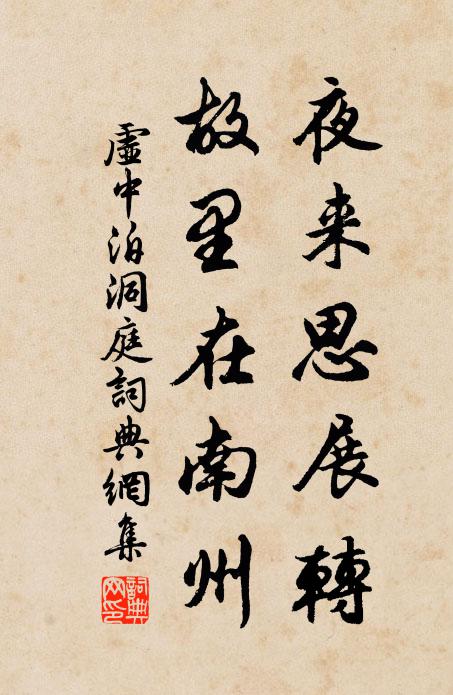 夜来思展轉
故里在南州
虛中泊洞庭詞典網集
詞典網印